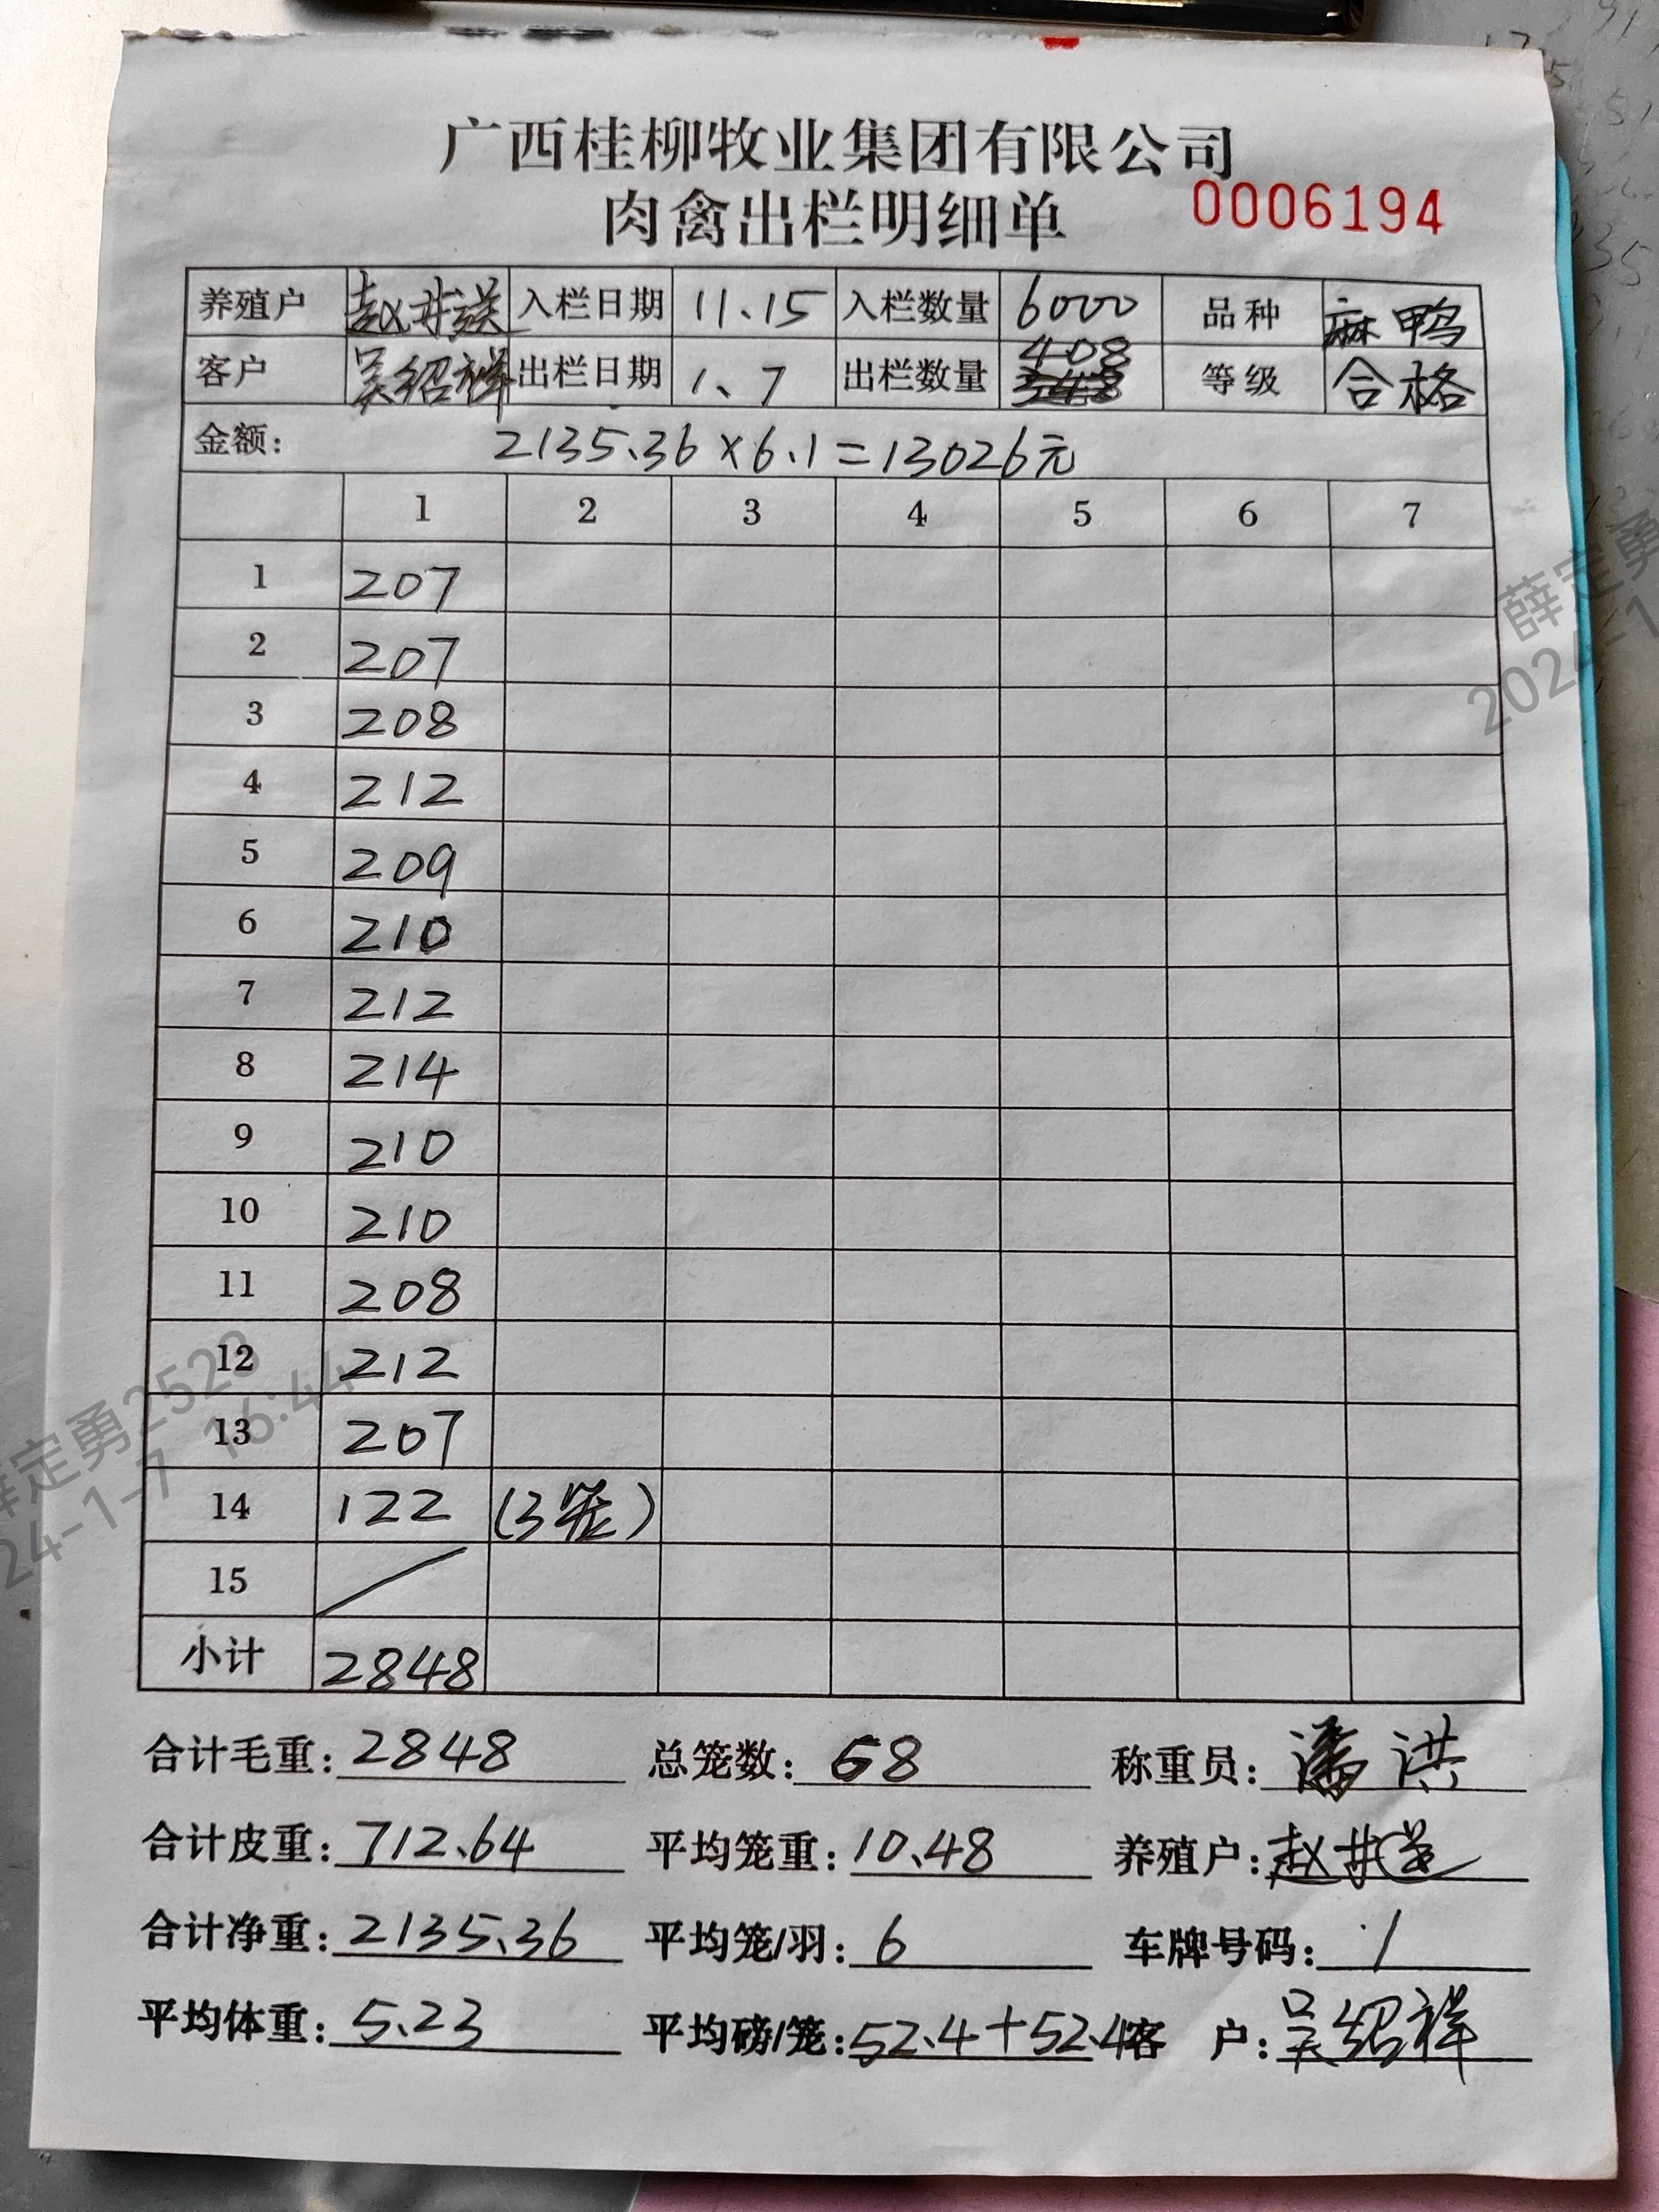 广西桂柳牧业集团有限公司
肉禽出栏明细单 0006194
养殖户 赵井送 入栏日期 11.15 入栏数量 6000 品种 麻鸭
客户 吴绍祥 出栏日期 1、7 出栏数量 408 等级 合格
金额: 2135.36×6.1=13026元
1 2 3 4 5 6 7
1 207
2 207
3 208
4 212
5 209
6 210
7 212
8 214
9 210
10 210
11 208
12 212
13 207
14 122 (3笼)
15 /
小计 2848
合计毛重: 2848 总笼数: 68 称重员: 潘洪
合计皮重: 712.64 平均笼重: 10.48 养殖户: 赵井送
合计净重: 2135.36 平均笼/羽: 6 车牌号码: 1
平均体重: 5.23 平均磅/笼: 52.4+52.4 客 户: 吴绍祥
薛定勇
2024-1
薛定勇2523
24-1-7 16:44